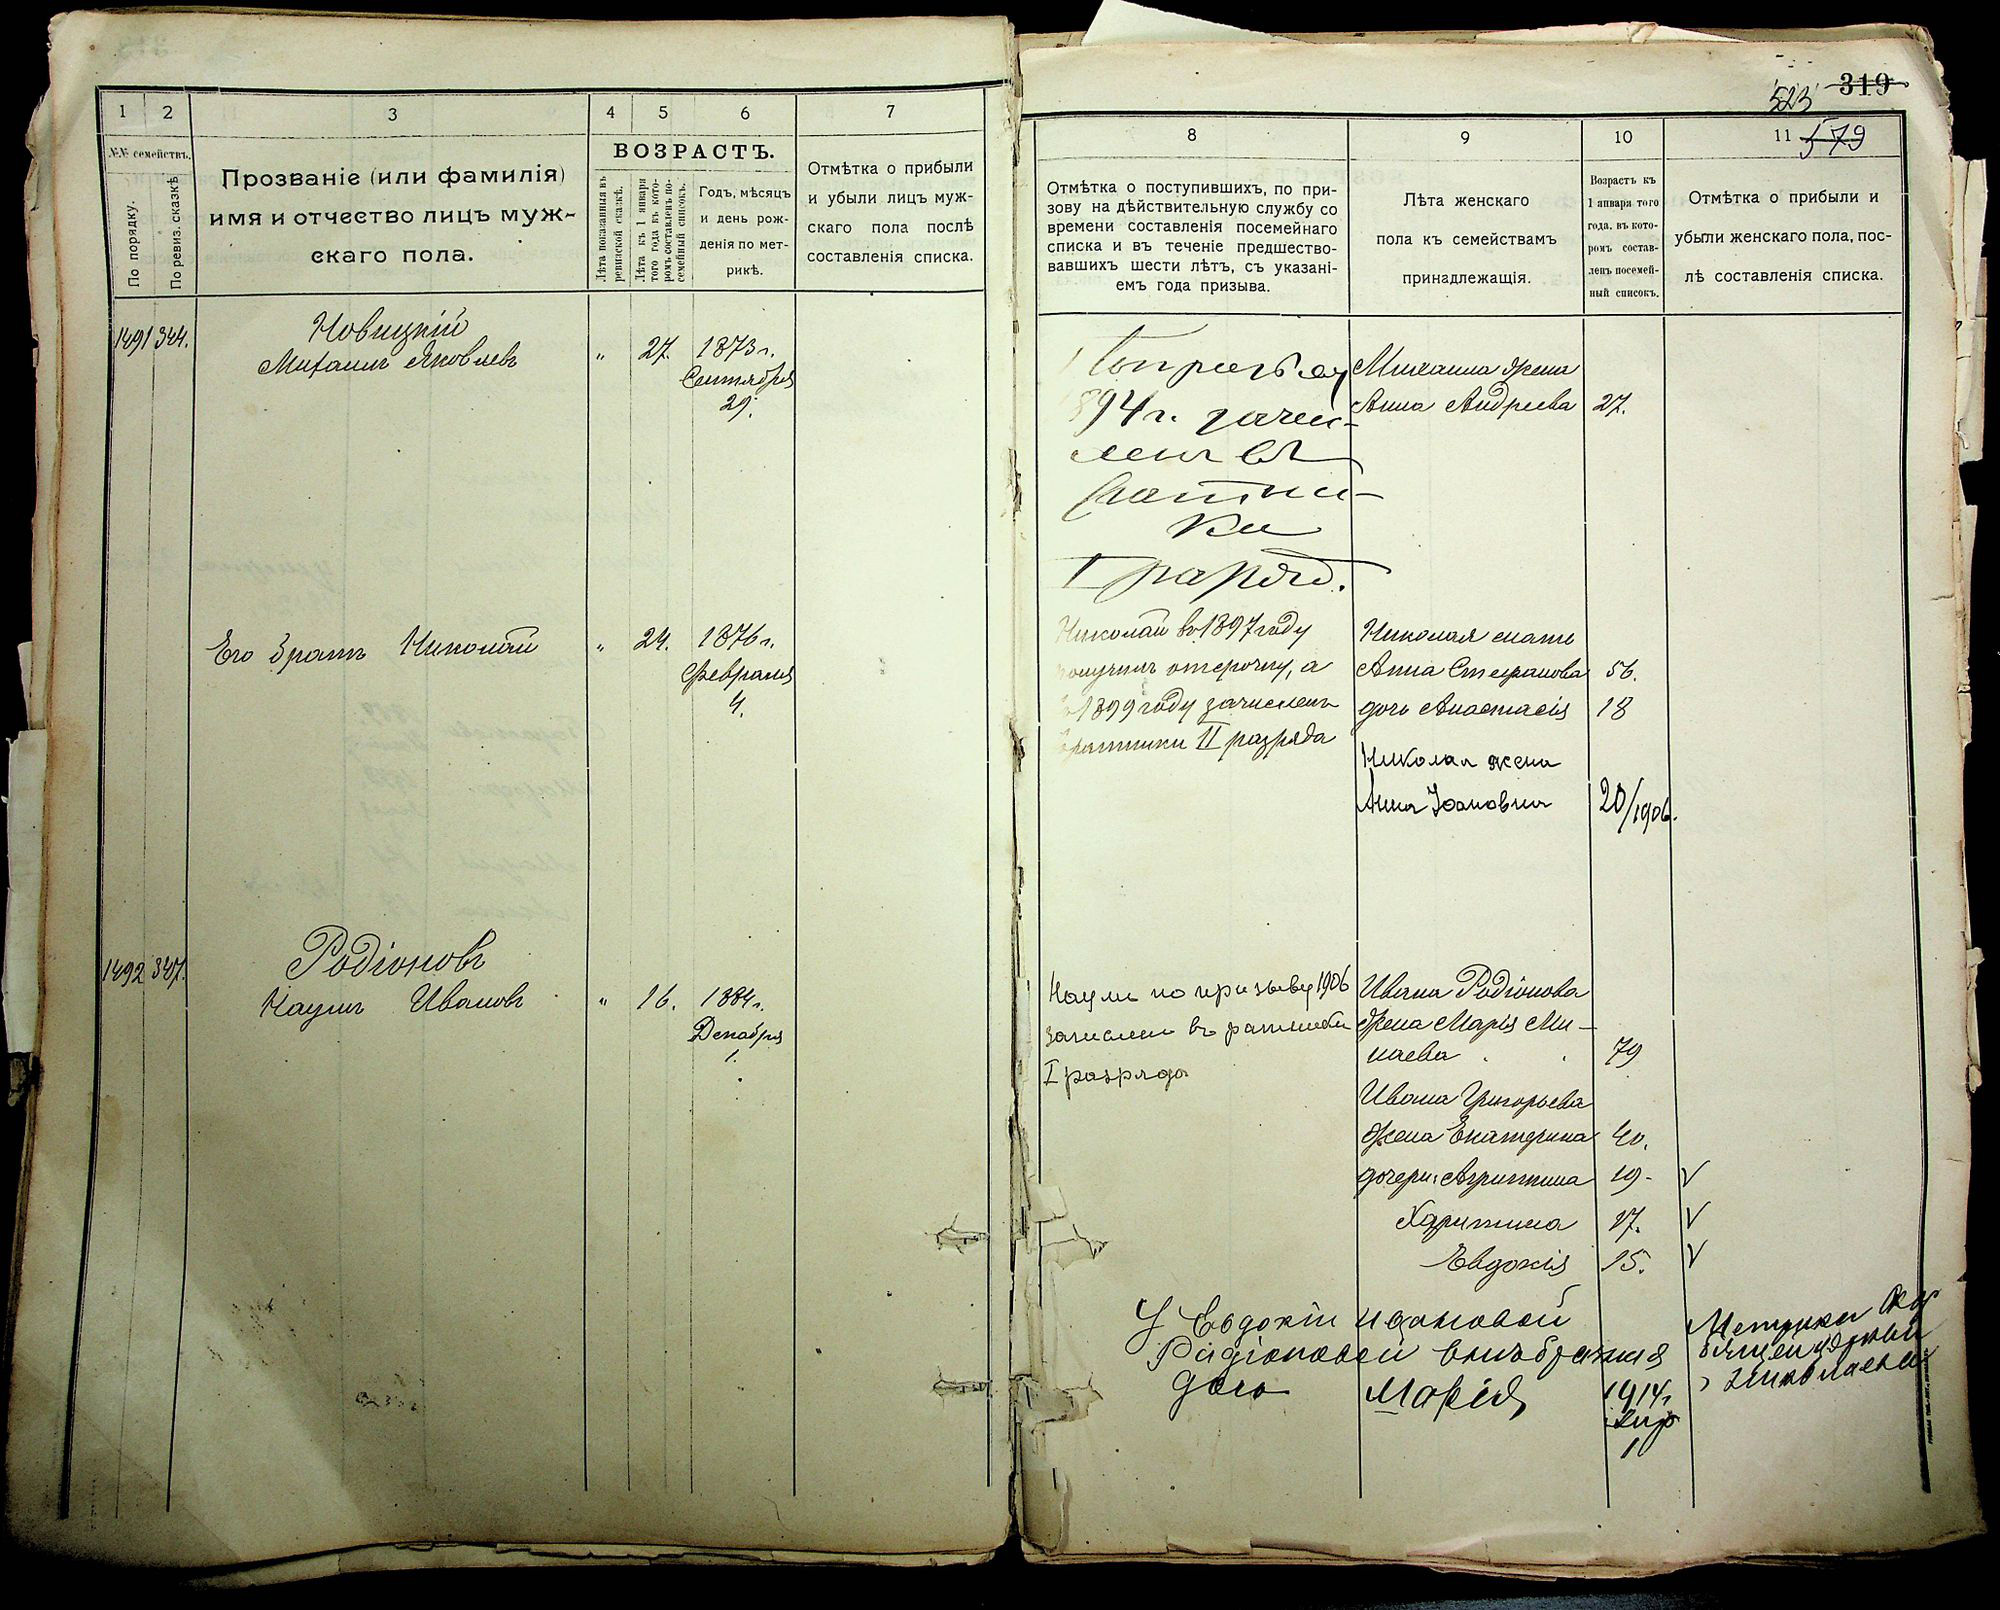 1 2 3 4 5 6 7
№№ семействъ.
По порядку.
По ревиз. сказкѣ
Прозваніе (или фамилія)
имя и отчество лицъ муж-
скаго пола.
ВОЗРАСТЪ.
Лѣта показанныя въ
ревизской сказкѣ.
Лѣта къ 1 января
того года въ кото-
ромъ составленъ по-
семейный списокъ.
Годъ, мѣсяцъ
и день рож-
денія по мет-
рикѣ.
Отмѣтка о прибыли
и убыли лицъ муж-
скаго пола послѣ
составленія списка.
1491 344.
Новицкій
Михаилъ Яковлевъ " 27. 1873 г.
Сентября
29.
Его братъ Николай " 24. 1876 г.
Февраля
4.
1492 347.
Родіоновъ
Наумъ Ивановъ " 16. 1884 г.
Декабря
1.
523 319
579
8 9 10 11
Отмѣтка о поступившихъ, по при-
зову на дѣйствительную службу со
времени составленія посемейнаго
списка и въ теченіе предшество-
вавшихъ шести лѣтъ, съ указані-
емъ года призыва.
Лѣта женскаго
пола къ семействамъ
принадлежащія.
Возрастъ къ
1 января того
года, въ кото-
ромъ состав-
ленъ посемей-
ный списокъ.
Отмѣтка о прибыли и
убыли женскаго пола, пос-
лѣ составленія списка.
1894 г. зачис-
ленъ въ
ратни-
ки
I разряд.
Михаила жена
Анна Андреева 27.
Николай въ 1897 году
получилъ отсрочку, а
въ 1899 году зачисленъ
ратники II разряда
Николая мать
Анна Стефанова 56.
дочь Анастасія 18
Николая жена
Анна Іоановна 20/1906.
Наумъ по призыву 1906
зачислен въ ратники
I разряда
Ивана Родіонова
жена Марія Ми-
наева 79
Ивана Григорьева
жена Екатерина 40.
дочери: Агрипина 19 - V
Харитина 17. V
Евдокія 15. V
У Евдокіи Ивановой
Радіоновой внѣбрачная
дочь Марія 1914 г.
1
Метрики
Николаевк